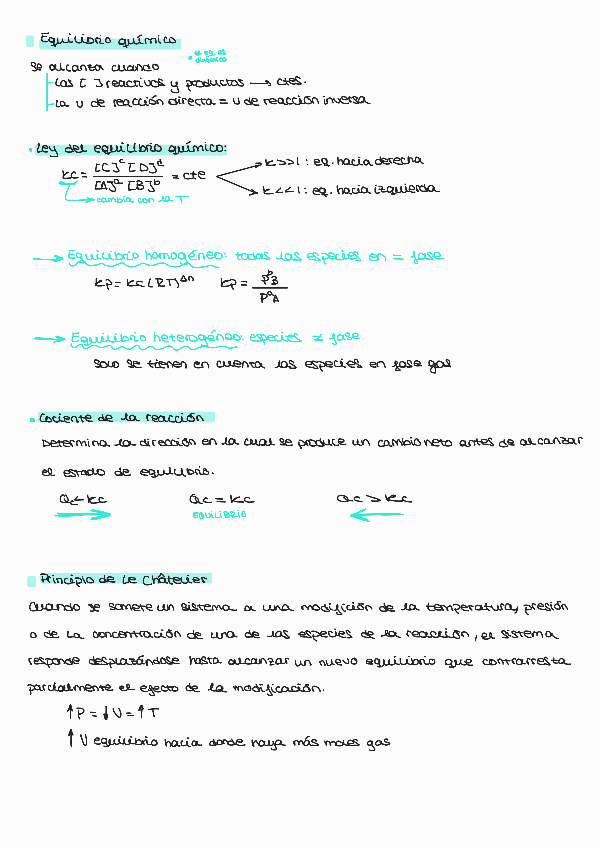 Equilibrio químico
• el eq. es dinámico
Se alcanza cuando
Las [ ] reactivos y productos → ctes.
La v de reacción directa = v de reacción inversa
• Ley del equilibrio químico:
Kc = [C]^c [D]^d / [A]^a [B]^b = cte
K>>1 : eq. hacia derecha
K<<1 : eq. hacia izquierda
cambia con la T
→ Equilibrio homogéneo: todas las especies en = fase
Kp = Kc (RT)^Δn Kp = P^b B / P^a A
→ Equilibrio heterogéneo: especies ≠ fase
Solo se tienen en cuenta las especies en fase gas
• Cociente de la reacción
Determina la dirección en la cual se produce un cambio neto antes de alcanzar
el estado de equilibrio.
Qc < Kc Qc = Kc Qc > Kc
→ EQUILIBRIO ←
Principio de Le Châtelier
Cuando se somete un sistema a una modifición de la temperatura, presión
o de la concentración de una de las especies de la reacción, el sistema
responde desplazándose hasta alcanzar un nuevo equilibrio que contrarresta
parcialmente el efecto de la modificación.
↑ P = ↓ V = ↑ T
↑ V equilibrio hacia donde haya más moles gas